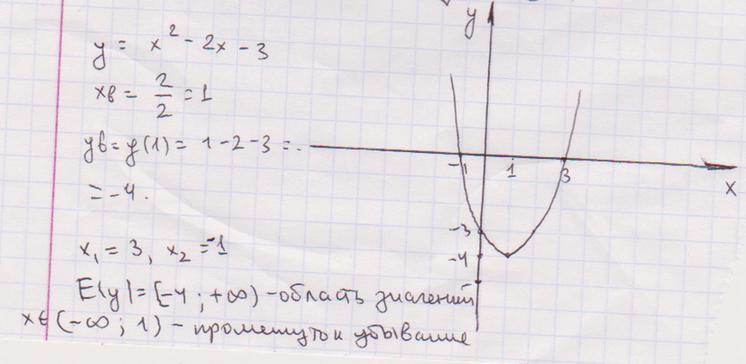 y = x² - 2x - 3
xв = 2/2 = 1
yв = y(1) = 1 - 2 - 3 =
= -4.
x₁ = 3, x₂ = -1
E(y) = [-4 ; +∞) - область значений
x∈(-∞ ; 1) - промежуток убывание
y
-1 1 3
x
-3
-4